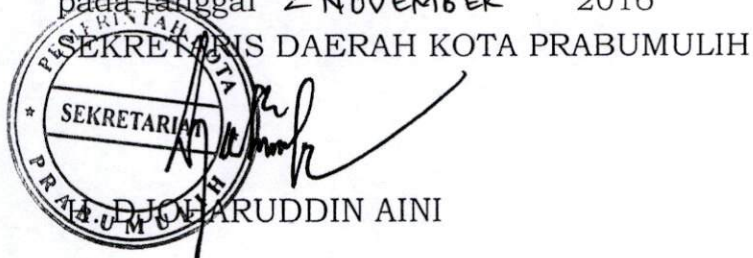 pada tanggal 2 NOVEMBER 2016
SEKRETARIS DAERAH KOTA PRABUMULIH
PEMERINTAH KOTA
SEKRETARIAT
PRABUMULIH
H. DJOHARUDDIN AINI